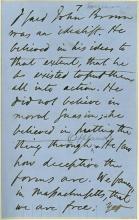 I said John Brown
was an idealist. He
believed in his ideas to
that extent, that he
existed to put them
all into action. He
did not believe in
moral suasion;—he
believed in putting the
thing through.—He saw
how deceptive the
forms are. We fancy
in Massachusetts, that
we are free;